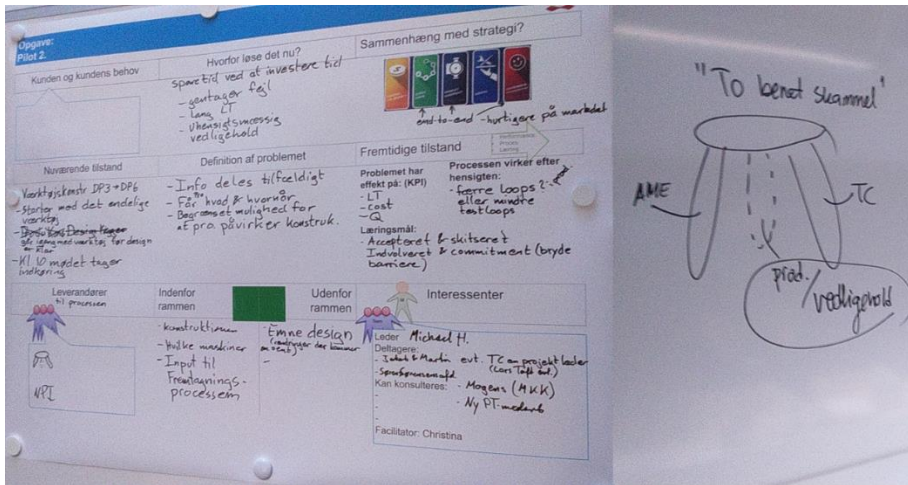 Opgave:
Pilot 2.
Kunden og kundens behov
Hvorfor løse det nu?
spare tid ved at investere tid
- gentager fejl
- lang LT
- Uhensigtsmæssig
vedligehold
Sammenhæng med strategi?
end-to-end - hurtigere på markedet
Performance
Process
Læring
Nuværende tilstand
- Værktøjskonstr DP3 → DP6
- Starter med det endelige
værktøj
går igang med værktøj før design
er klar
- Kl. 10 mødet tager
indkøring
Definition af problemet
- Info deles tilfældigt
- Får hvad & hvornår
- Begrænset mulighed for
at pro påvirker konstruk.
Fremtidige tilstand
Problemet har
effekt på: (KPI)
- LT
- cost
- Q
Processen virker efter
hensigten:
- færre loops?
eller mindre
testloops
Læringsmål:
- Accepteret & skitseret
Indvolveret & commitment (bryde
barriere)
Leverandører
til processen
NPI
Indenfor
rammen
- konstruktionen
- Hvilke maskiner
- Input til
Fremtagnings-
processem
Udenfor
rammen
- Emne design
-
Interessenter
Leder Michael H.
Deltagere:
- Jakob & Martin evt. TC en projektleder
Kan konsulteres: - Mogens (MKK)
- Ny PT-medarb
-
Facilitator: Christina
"To benet skammel"
AME
TC
prod./
vedligehold